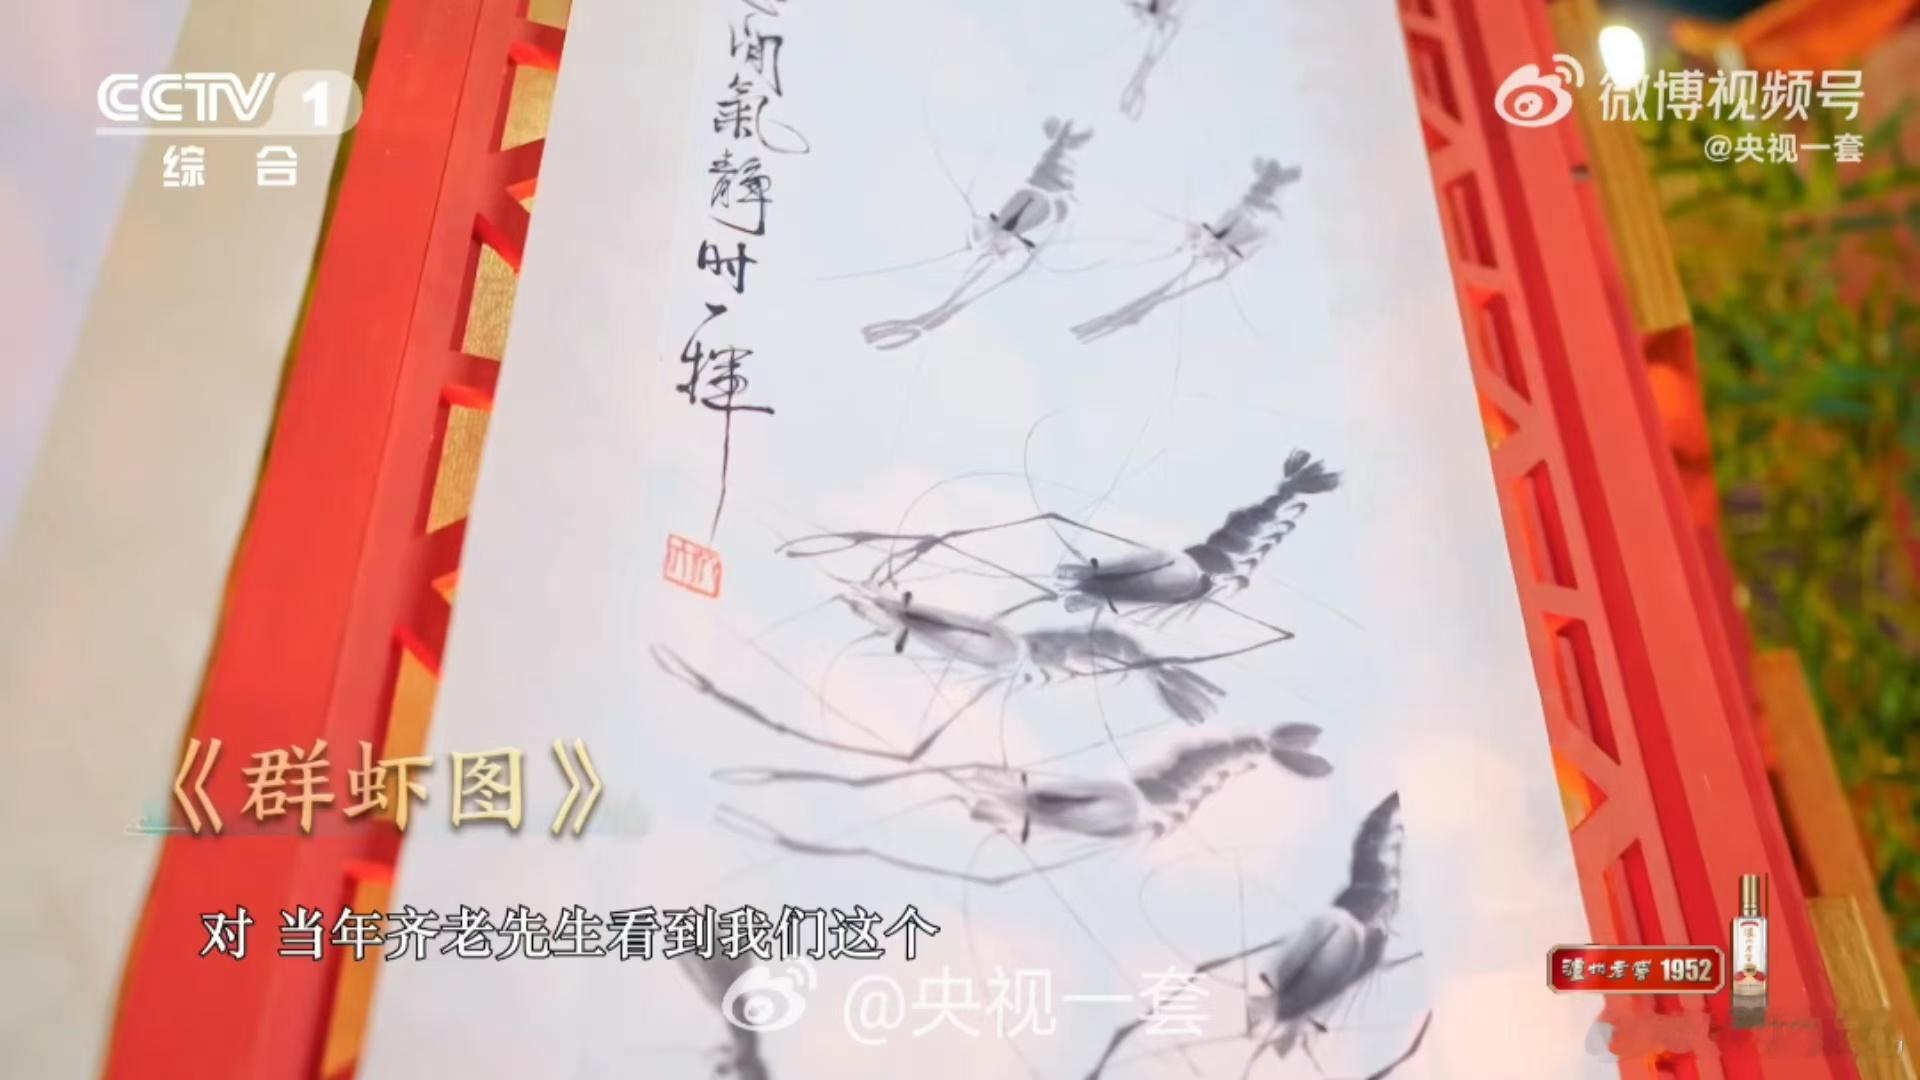 CCTV 1
综 合
微博视频号
@央视一套
閒氣靜时一揮
《群虾图》
对 当年齐老先生看到我们这个
@央视一套
泸州老窖 1952